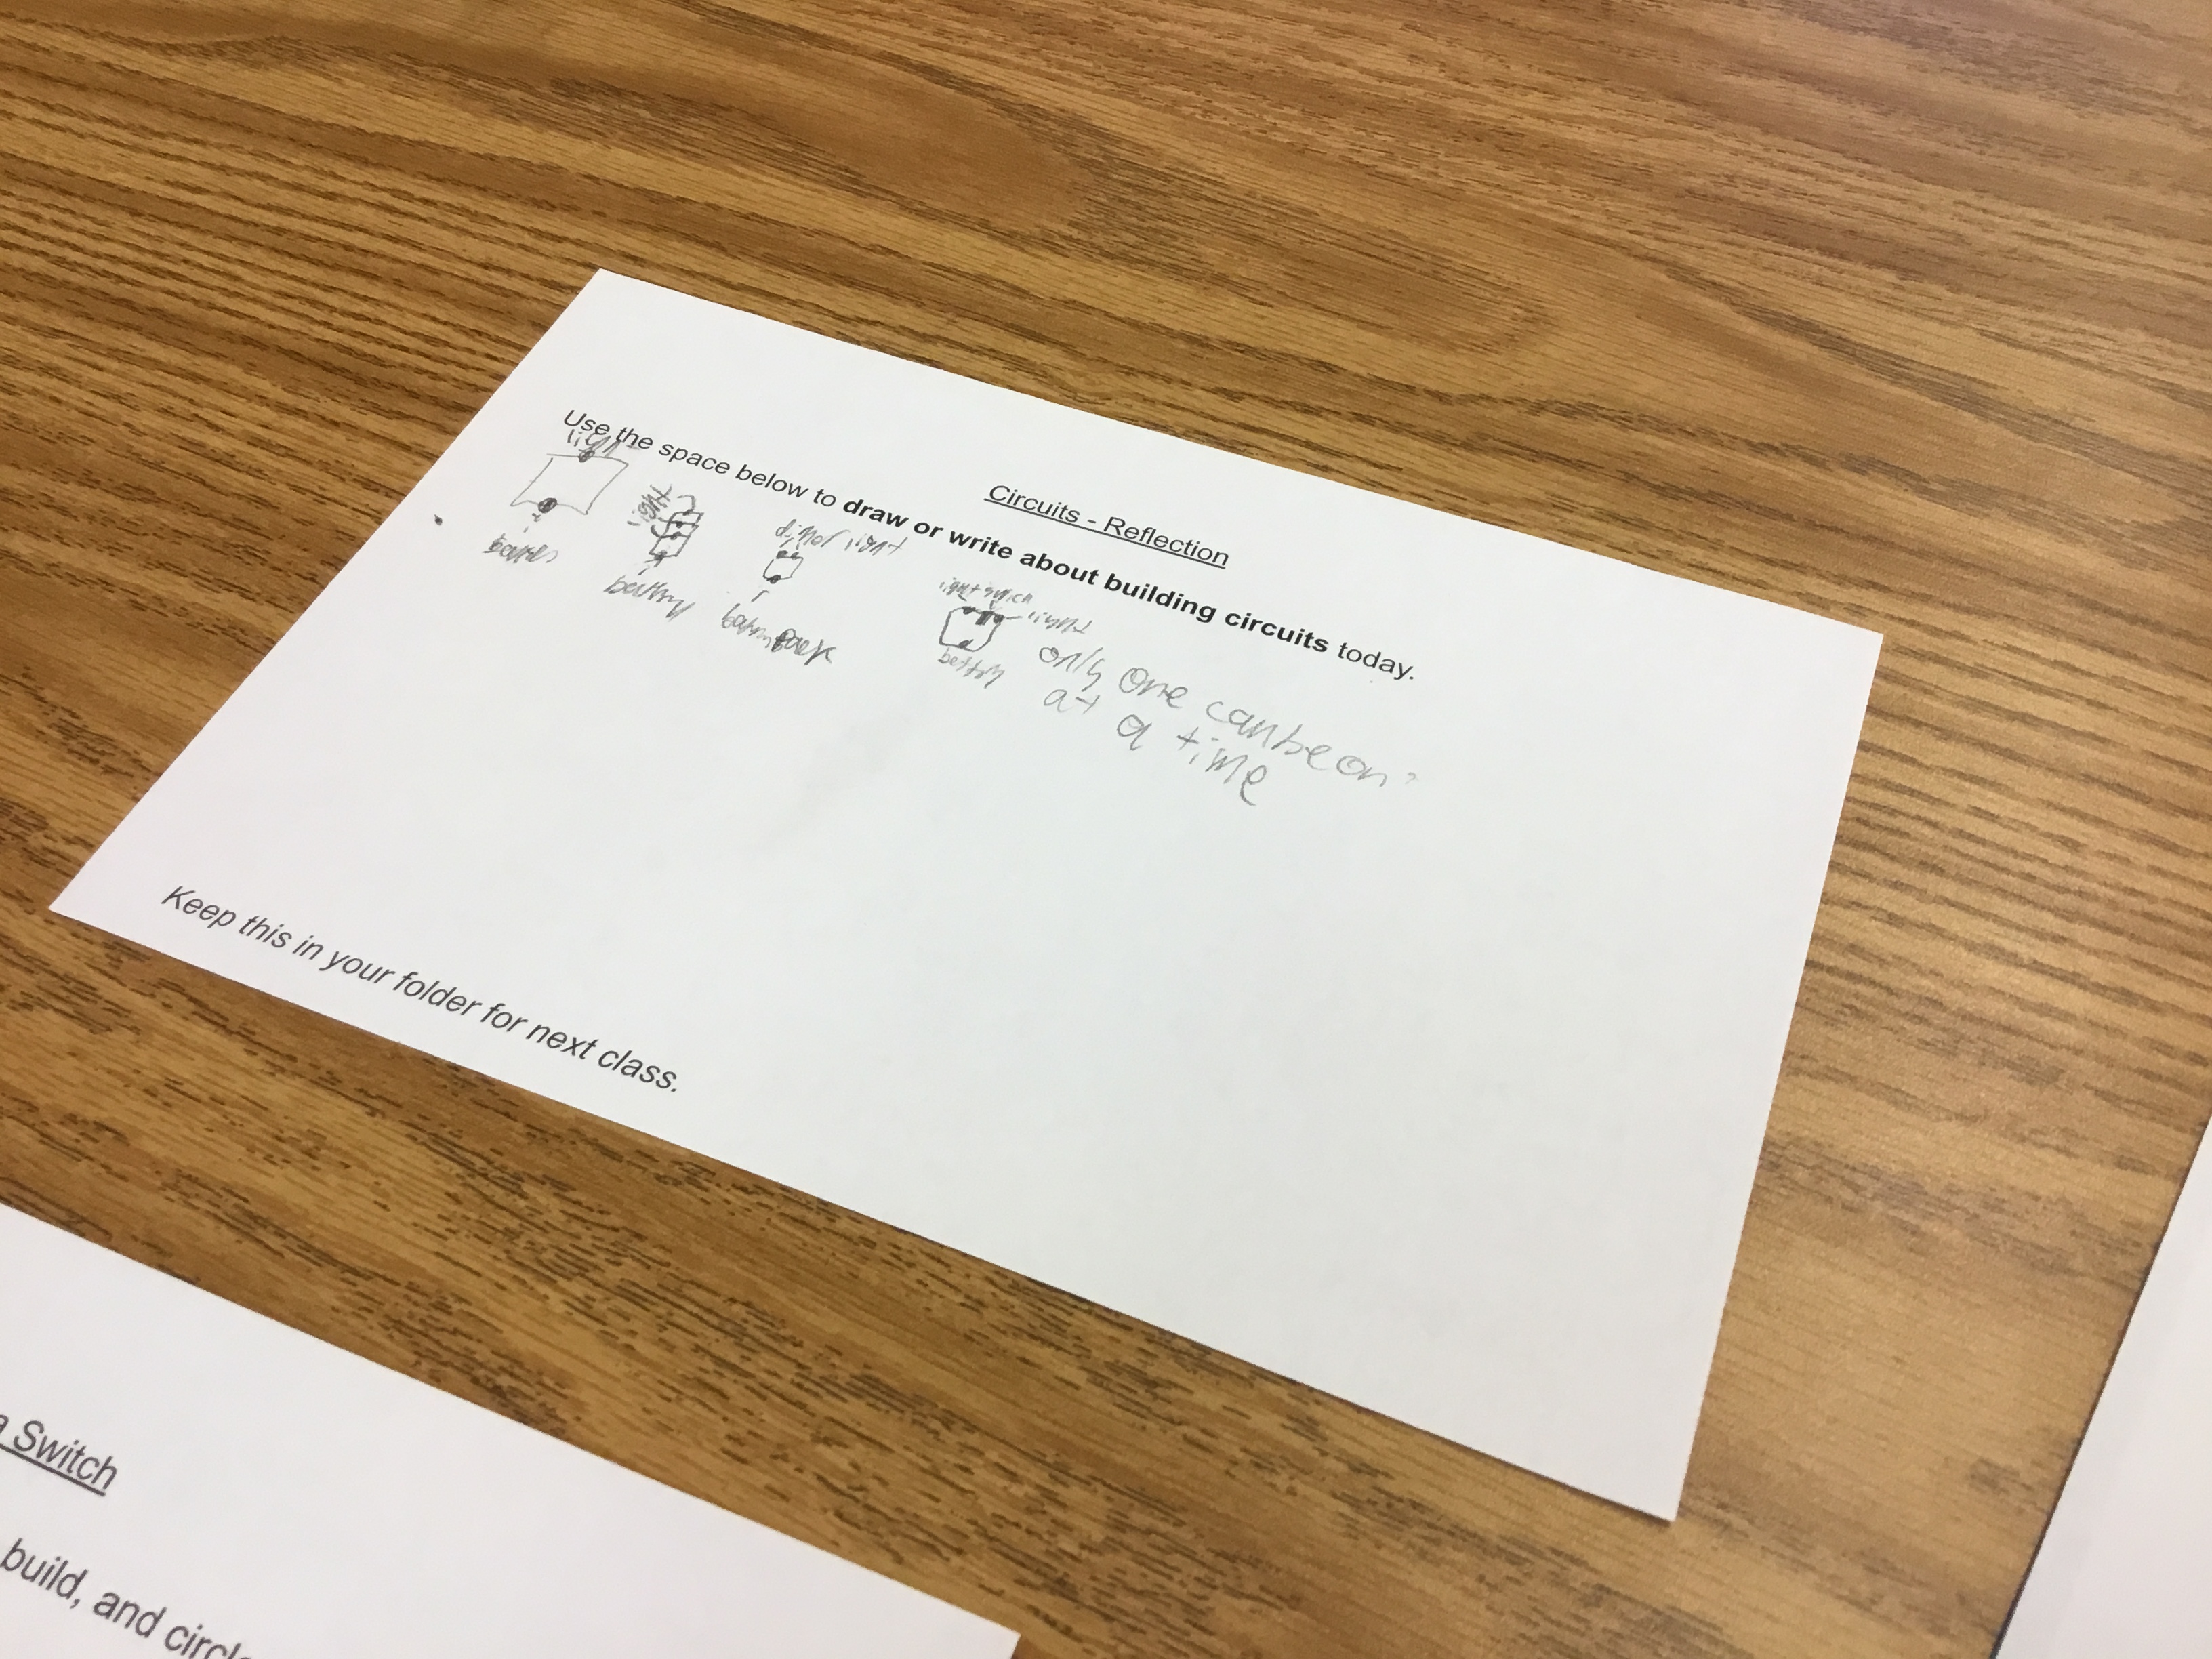 Circuits - Reflection
Use the space below to draw or write about building circuits today.
light
light
battery
light
battery
only one can be on
at a time
Keep this in your folder for next class.
a Switch
build, and circle